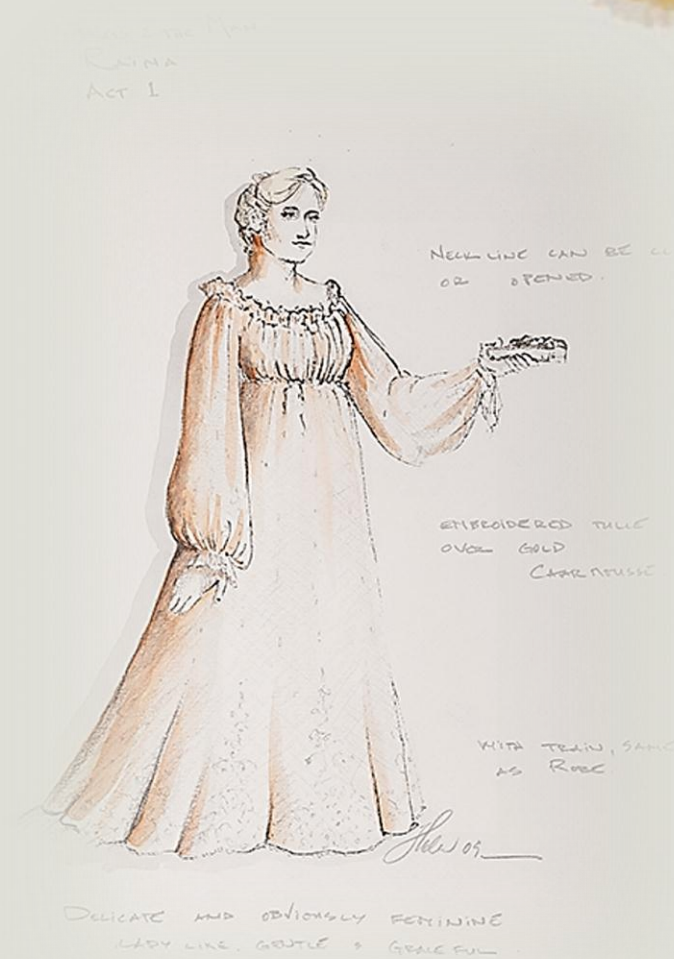 Raina
Act 1
Neckline can be
or opened.
Embroidered tulle
over gold
Charmeusse
with train, same
as Robe
09
Delicate and obviously feminine
Lady like. Gentle & Graceful